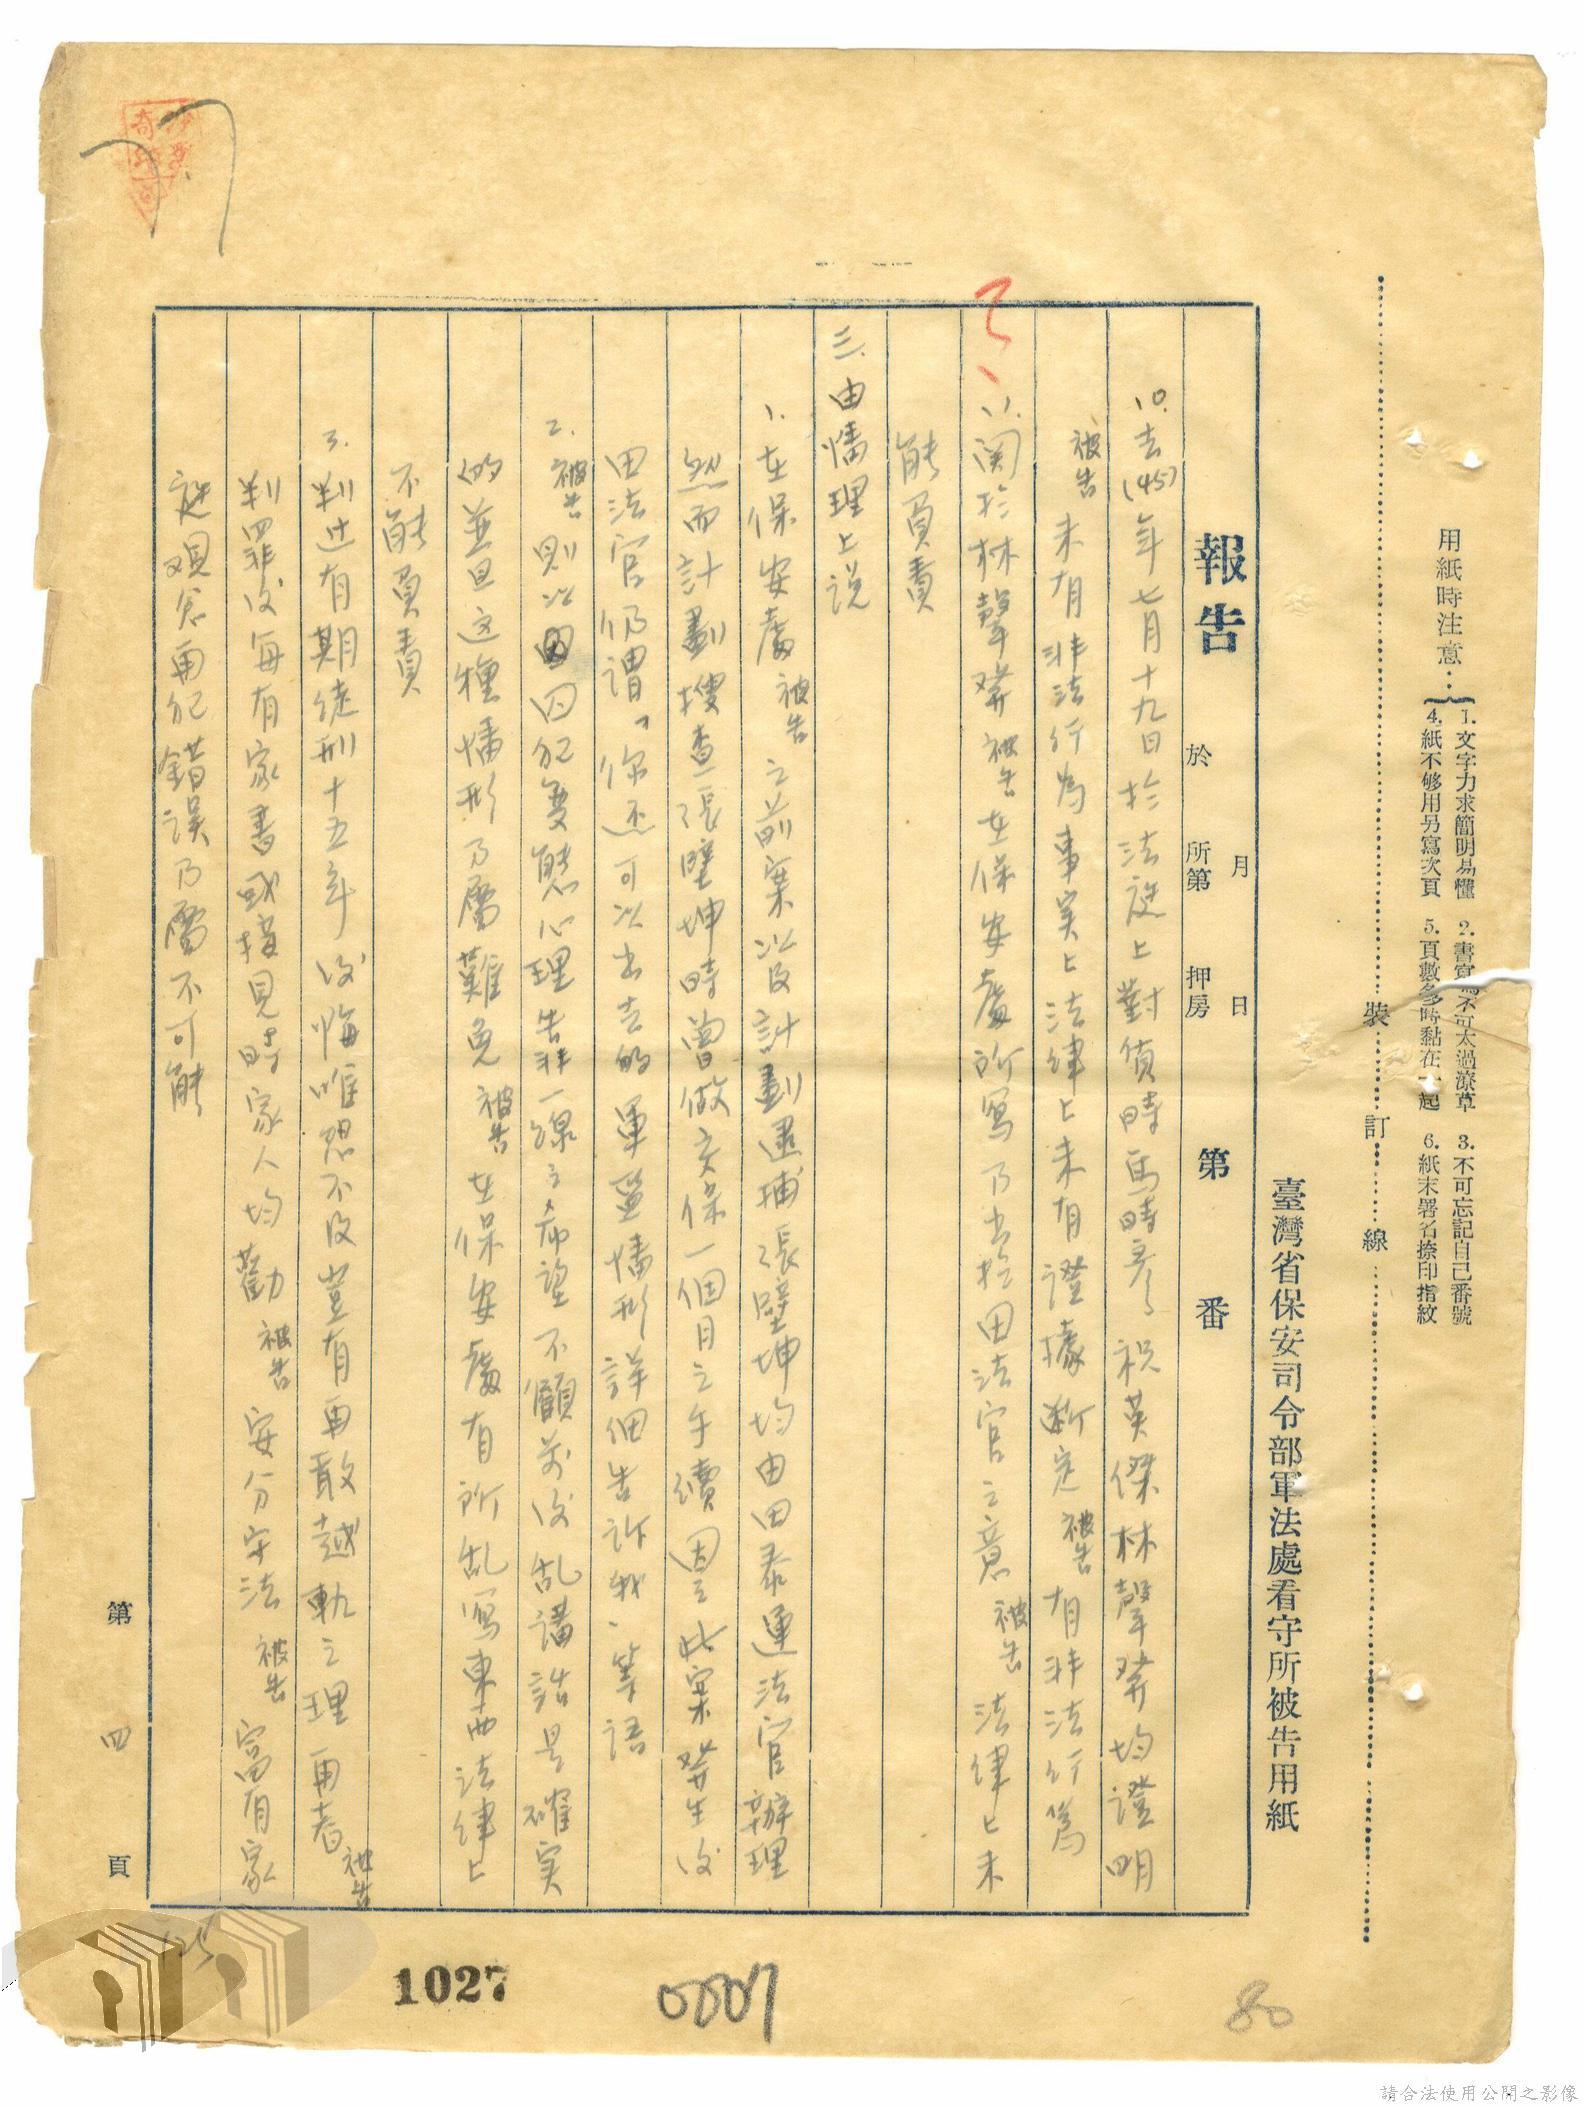 用紙時注意：
1. 文字力求簡明易懂 2. 書寫不可太過潦草 3. 不可忘記自己番號
4. 紙不够用另寫次頁 5. 頁數多時黏在一起 6. 紙末署名捺印指紋
裝 訂 線
臺灣省保安司令部軍法處看守所被告用紙
報告 月 日
於 所第 押房 第 番
10. 去(45)年七月十九日於法庭上對質時馬時彥、祝英傑林聲發均證明
被告未有非法行為事実上法律上未有證據断定被告有非法行為
11. 関於林聲發被告在保安處所寫乃出於田法官之意被告法律上未
能負責
三. 由情理上說
1. 在保安處被告之前案以及計劃逮捕張壁坤均由田泰運法官辦理
然而計劃搜查張壁坤時曾做交保一個月之手續因至此案發生後
田法官仍謂「你还可以出去的軍監情形詳細告訴我」等語
2. 被告則以囚犯変態心理告非一線之希望不顧前後乱講話是確実
的並且这種情形乃属難免被告在保安處有所乱寫東西法律上
不能負責
3. 判过有期徒刑十五年後悔唯恐不及豈有再敢越軌之理再者被告
判罪後每有家書或接見時家人均勸被告安分守法被告富有家
庭观念再犯錯誤乃属不可能
第 四 頁
1027
0007
80
125
請合法使用公開之影像